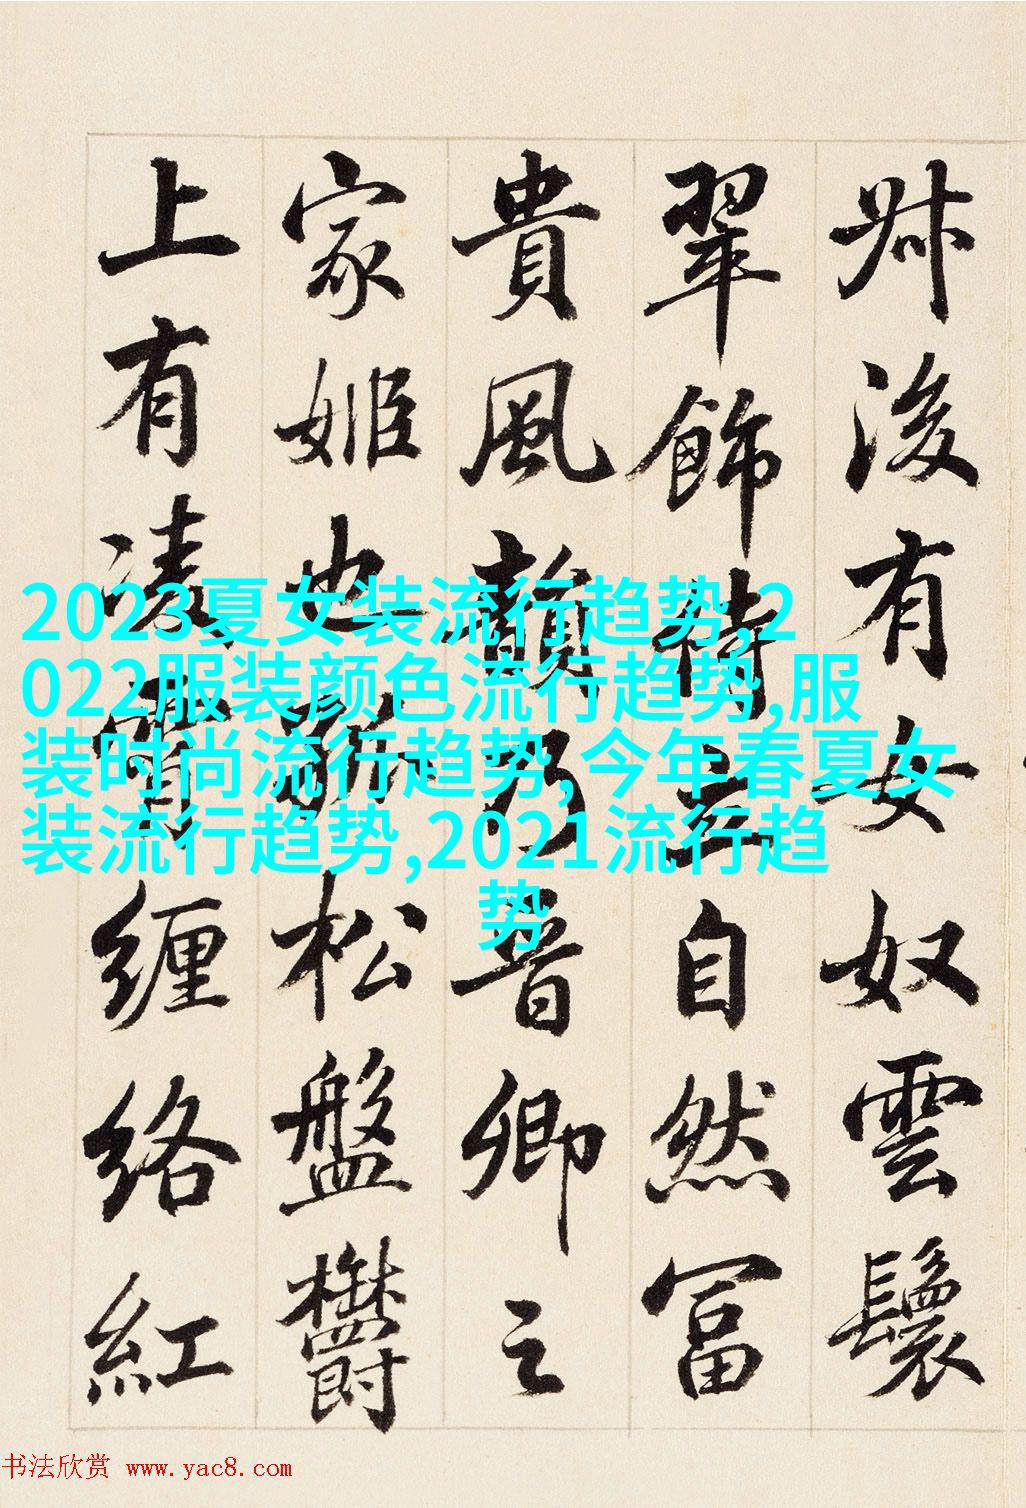 𣥺後有女奴雲鬟
翠飾侍立自然富
貴風韻乃晋卿之
家姬也所松盤鬱
上有凌霄纏絡紅
2023夏女装流行趋势,2
022服装颜色流行趋势,服
装时尚流行趋势, 今年春夏女
装流行趋势,2021流行趋
势
书法欣赏 www.yac8.com